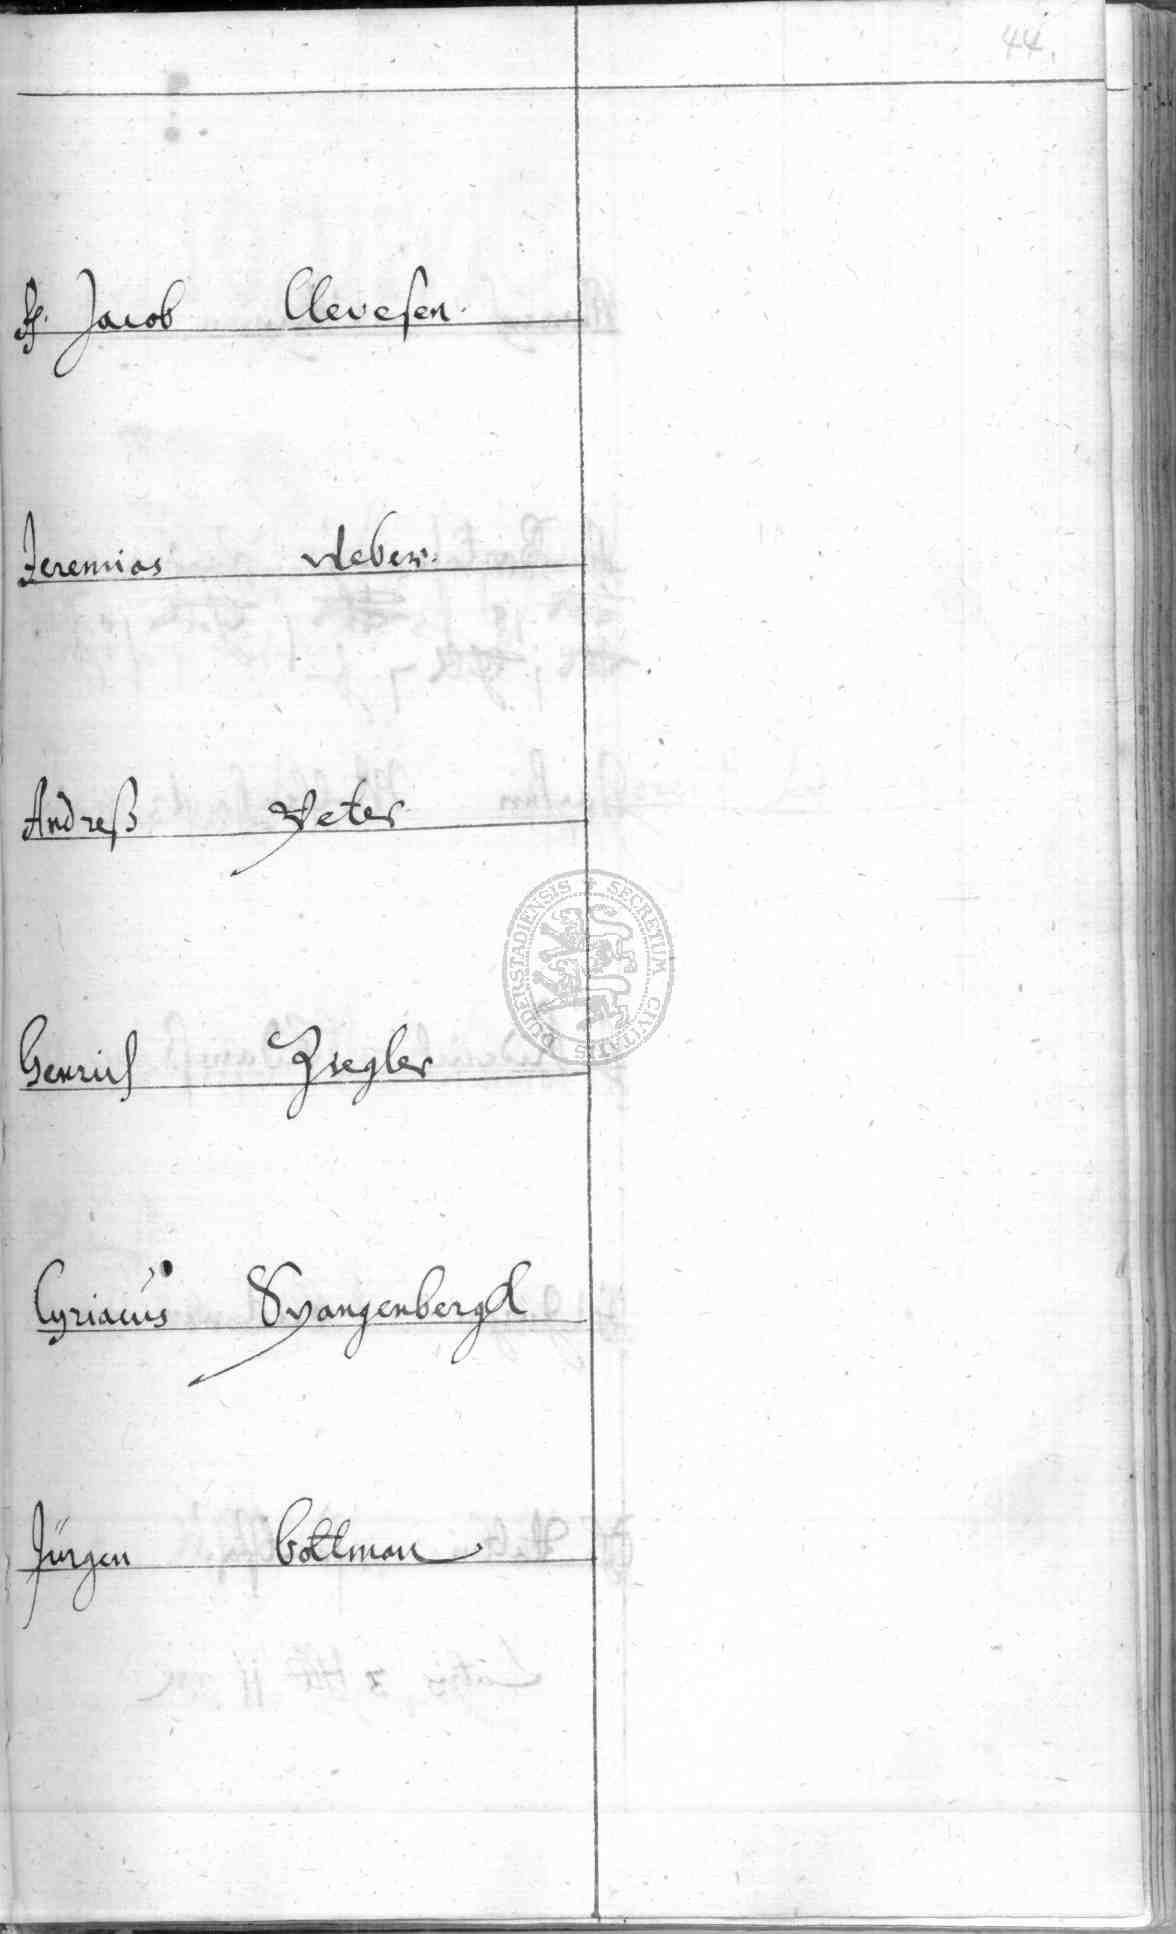 44.
H. Jacob Clevesen.
Jeremias Weber.
Andreß Peter
Henrich Ziegler
Cyriacus Spangenbergk
Jürgen Cottman
DUDERSTADIENSIS + SECRETUM CIVITATIS